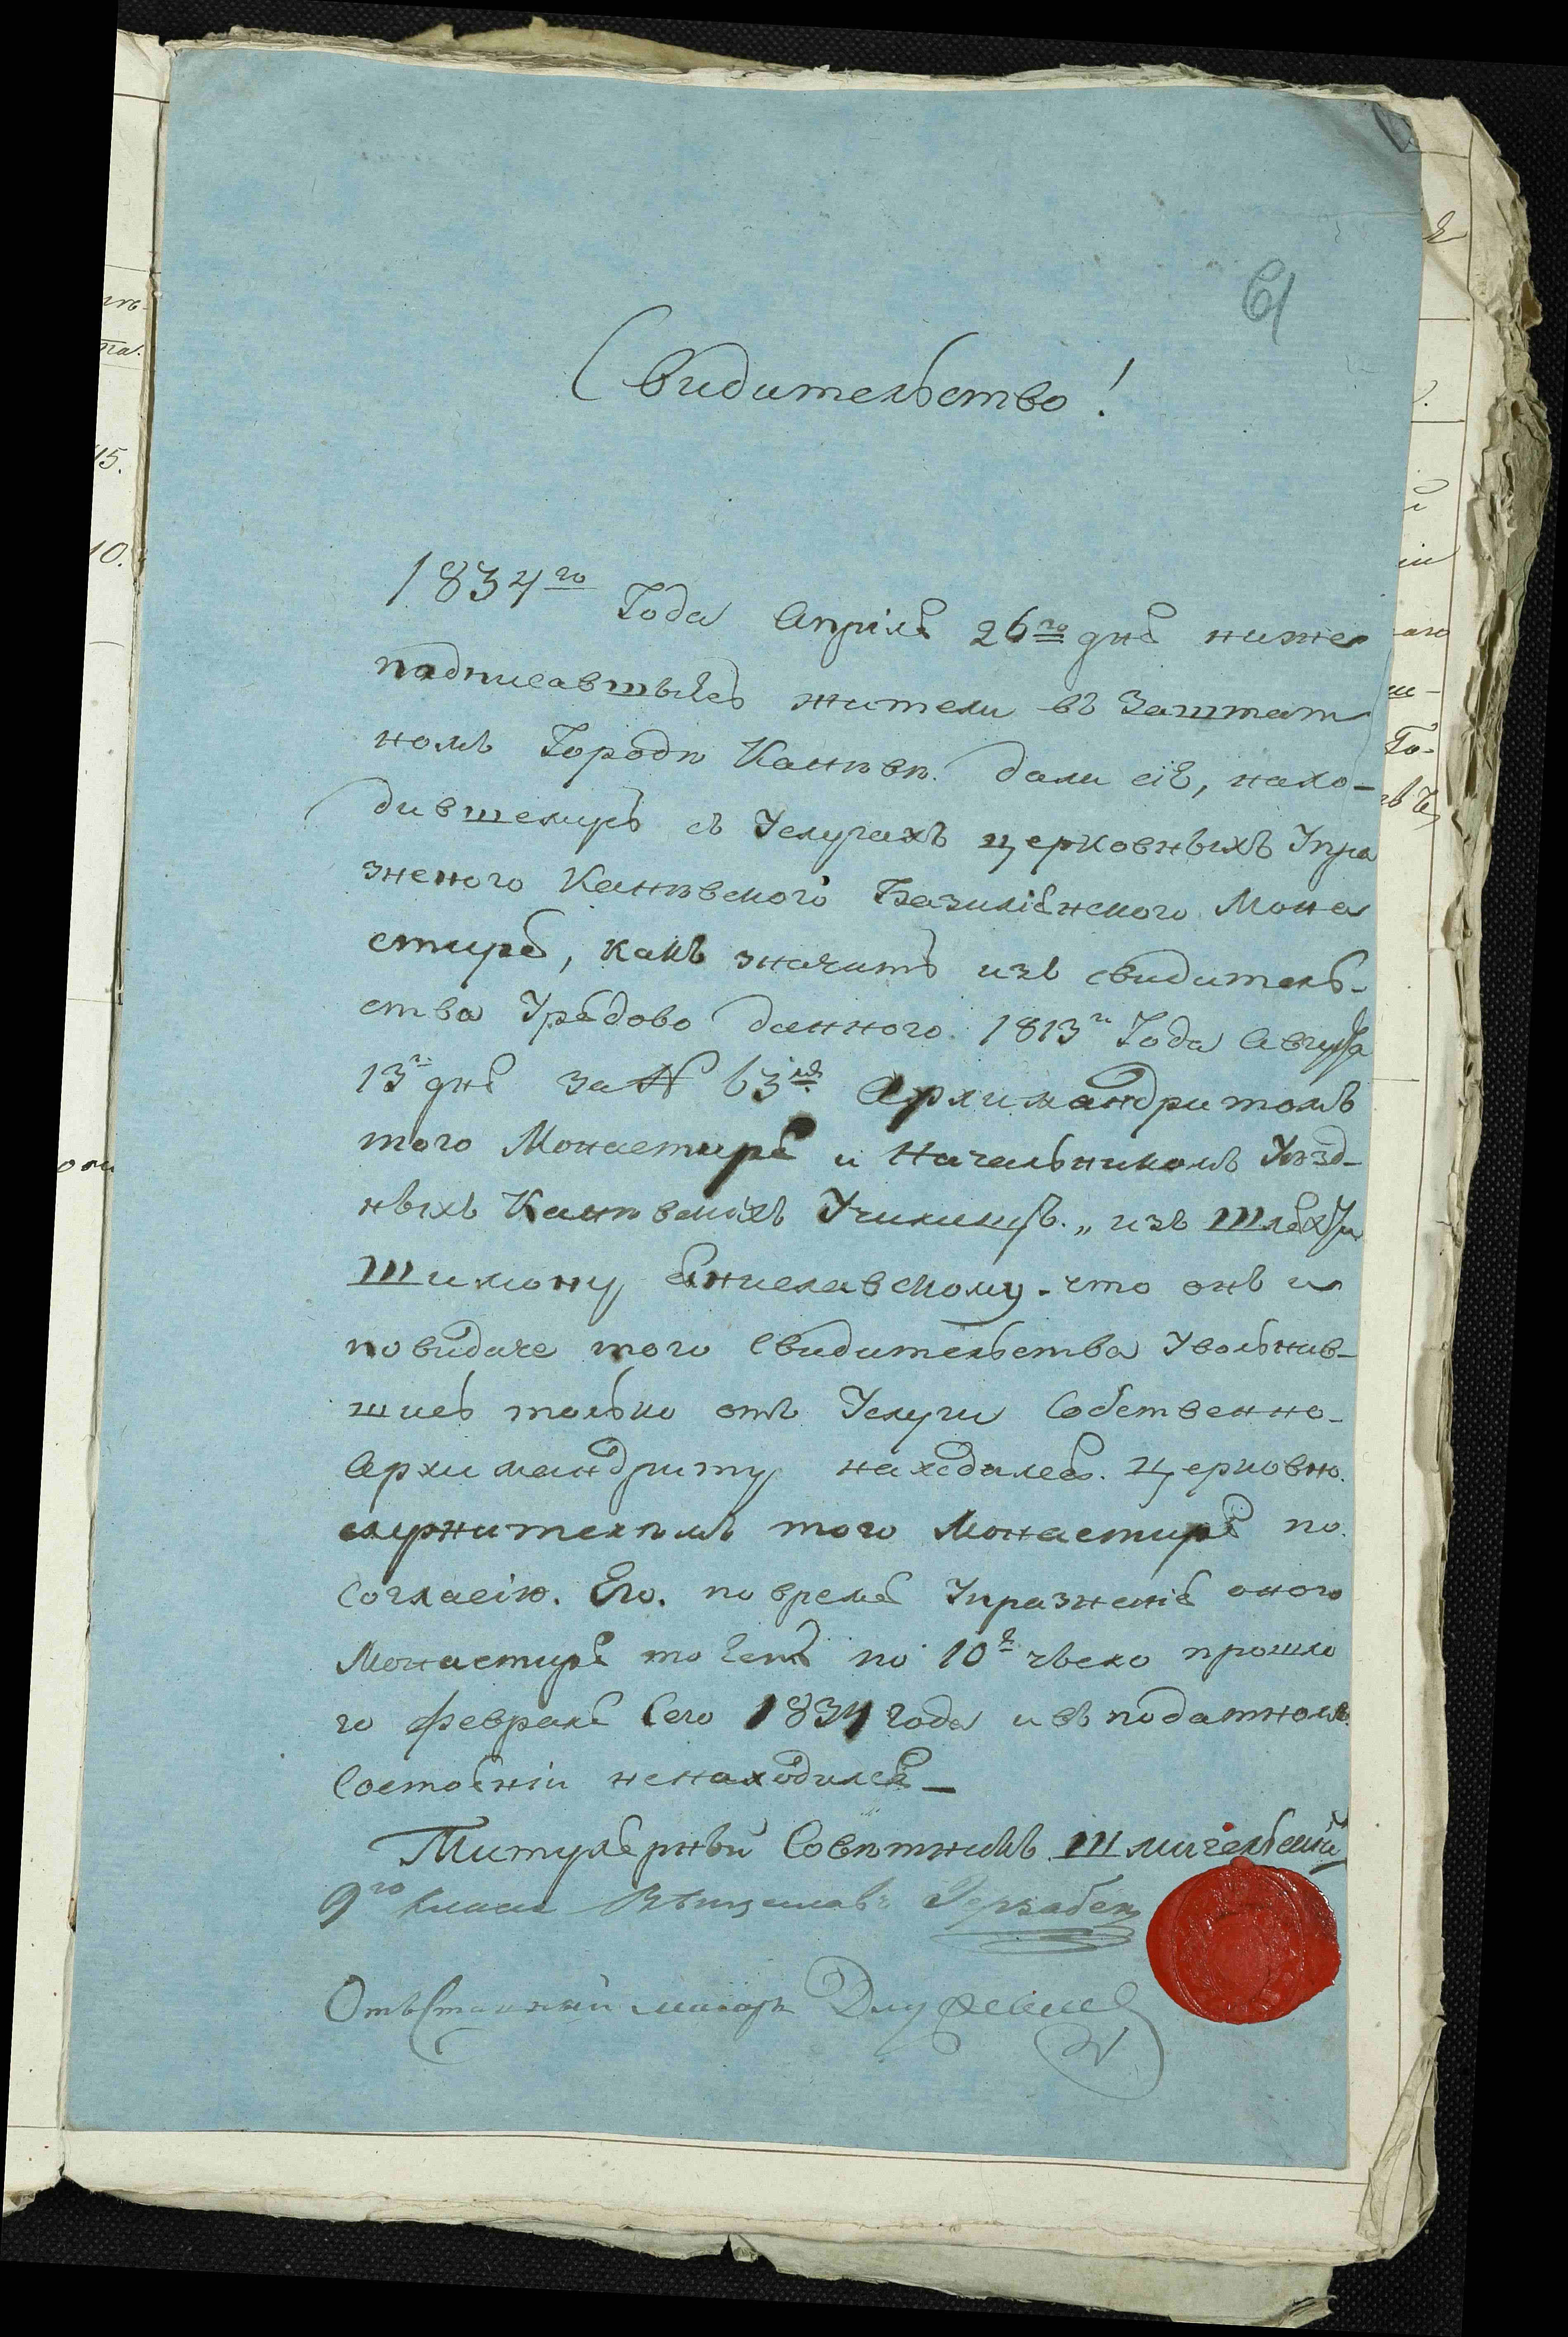 61
Свидительство!
1834го Года Апріля 26го дня ниже
подписавшыясь жители въ Заштат
номъ Городѣ Каневѣ. дали сіе, нахо-
дившемусь въ Услугахъ церковныхъ Упра
зненого Каневского Базиліянского Мона
стиря, какъ значитъ изъ свидитель-
ства Урядово данного. 1813го Года Августа
13го дня за N 63мъ Архимандритомъ
того Монастиря и Начальникомъ Уѣзд-
ныхъ Каневскихъ Училищъ. „ изъ Шляхты
Шимону что онъ и
по видаче того Свидительства Увольнив-
шись только отъ Услуги Собственно-
Архимандриту находился. Церковно
служителемъ того Монастиря по
согласію. Его. по время Упразненія оного
Монастиря то есть по 10е число прошло
го февраля Сего 1834 года и въ податномъ
Состояніи ненаходился_
Титулярный Совѣтникъ
9го класа
Отъставный